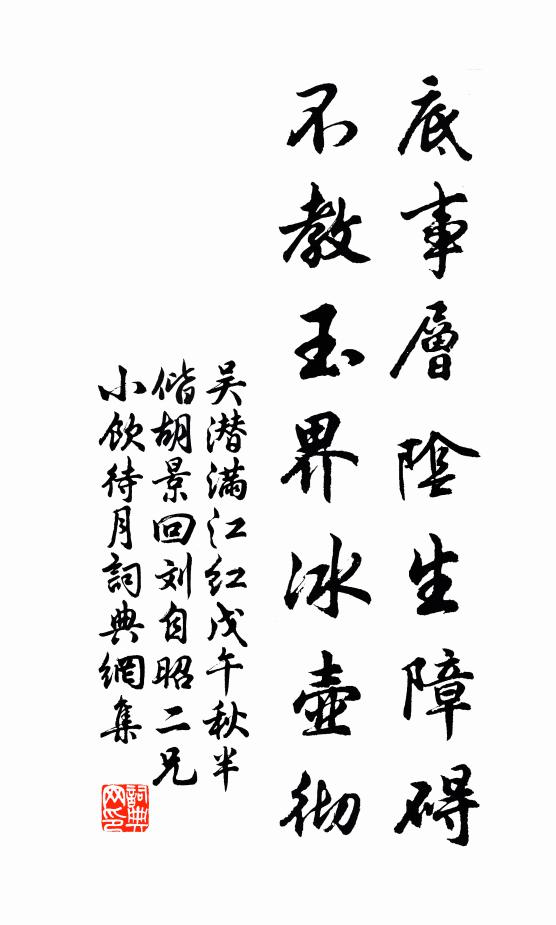 底事層陰生障碍
不教玉界冰壺彻
吴潜满江红戊午秋半
偕胡景回刘自昭二兄
小饮待月詞典網集
詞典网印